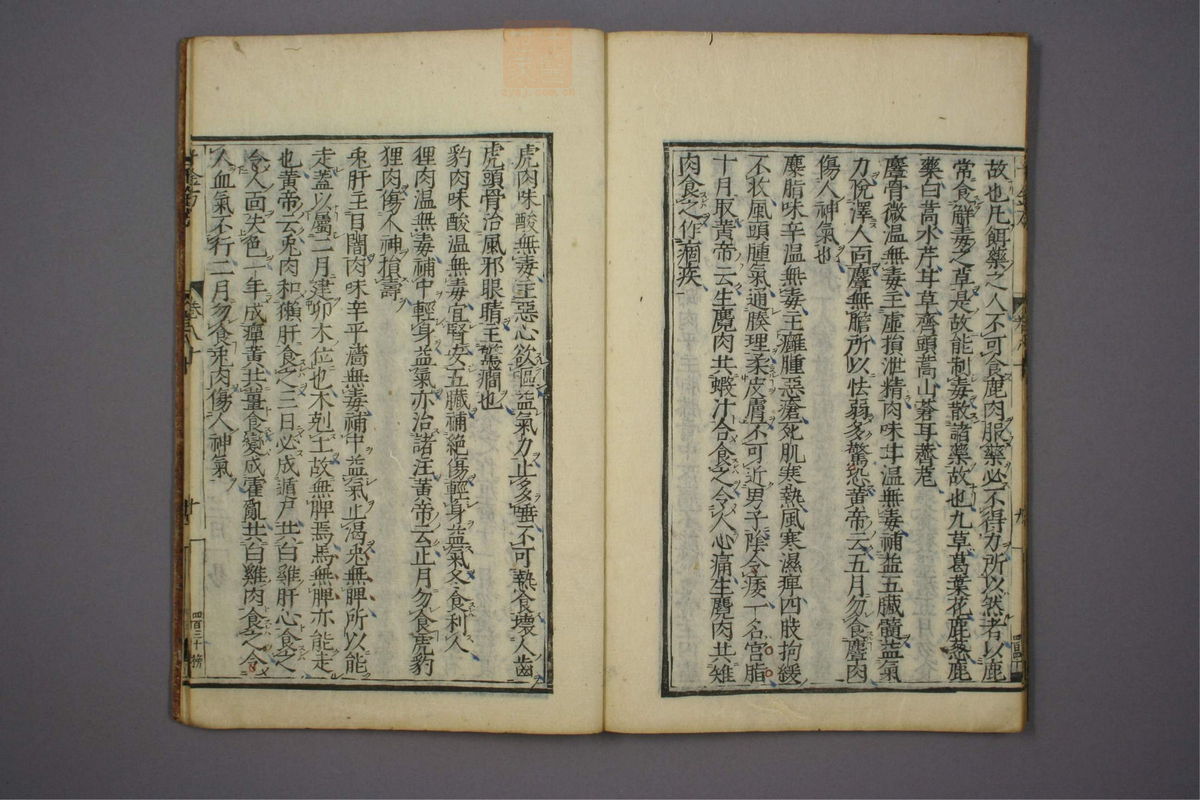 故也凡餌藥之人不可食鹿肉服藥必不得力所以然者以鹿
常食解毒之草是故能制毒散諸藥故也九草葛葉花鹿葱鹿
藥白蒿水芹甘草齊頭蒿山蒼耳薺苨
麞骨微溫無毒主虛損泄精肉味甘溫無毒補益五臟髓益氣
力悅澤人面麞無膽所以怯弱多驚恐黃帝云五月勿食麞肉
傷人神氣也
麋脂味辛溫無毒主癰腫惡瘡死肌寒熱風寒濕痺四肢拘緩
不收風頭腫氣通腠理柔皮膚不可近男子陰令痿一名宮脂
十月取黃帝云生麑肉共蝦汁合食之令人心痛生麑肉共雉
肉食之作痼疾
虎肉味酸無毒主惡心欲嘔益氣力止多唾不可熱食壞人齒
虎頭骨治風邪眼睛主驚癇也
豹肉味酸溫無毒宜腎安五臟補絕傷輕身益氣冬食利人
狸肉溫無毒補中輕身益氣亦治諸注黃帝云正月勿食虎豹
狸肉傷人神損壽
兎肝主目闇肉味辛平濇無毒補中益氣止渴兎無脾所以能
走蓋以屬二月建卯木位也木剋土故無脾焉馬無脾亦能走
也黃帝云兎肉和獺肝食之三日必成遁尸共白雞肝心食之
令人面失色一年成癉黃共薑食變成霍亂共白雞肉食之令
人血氣不行二月勿食兎肉傷人神氣
卷八十
十
四百三十